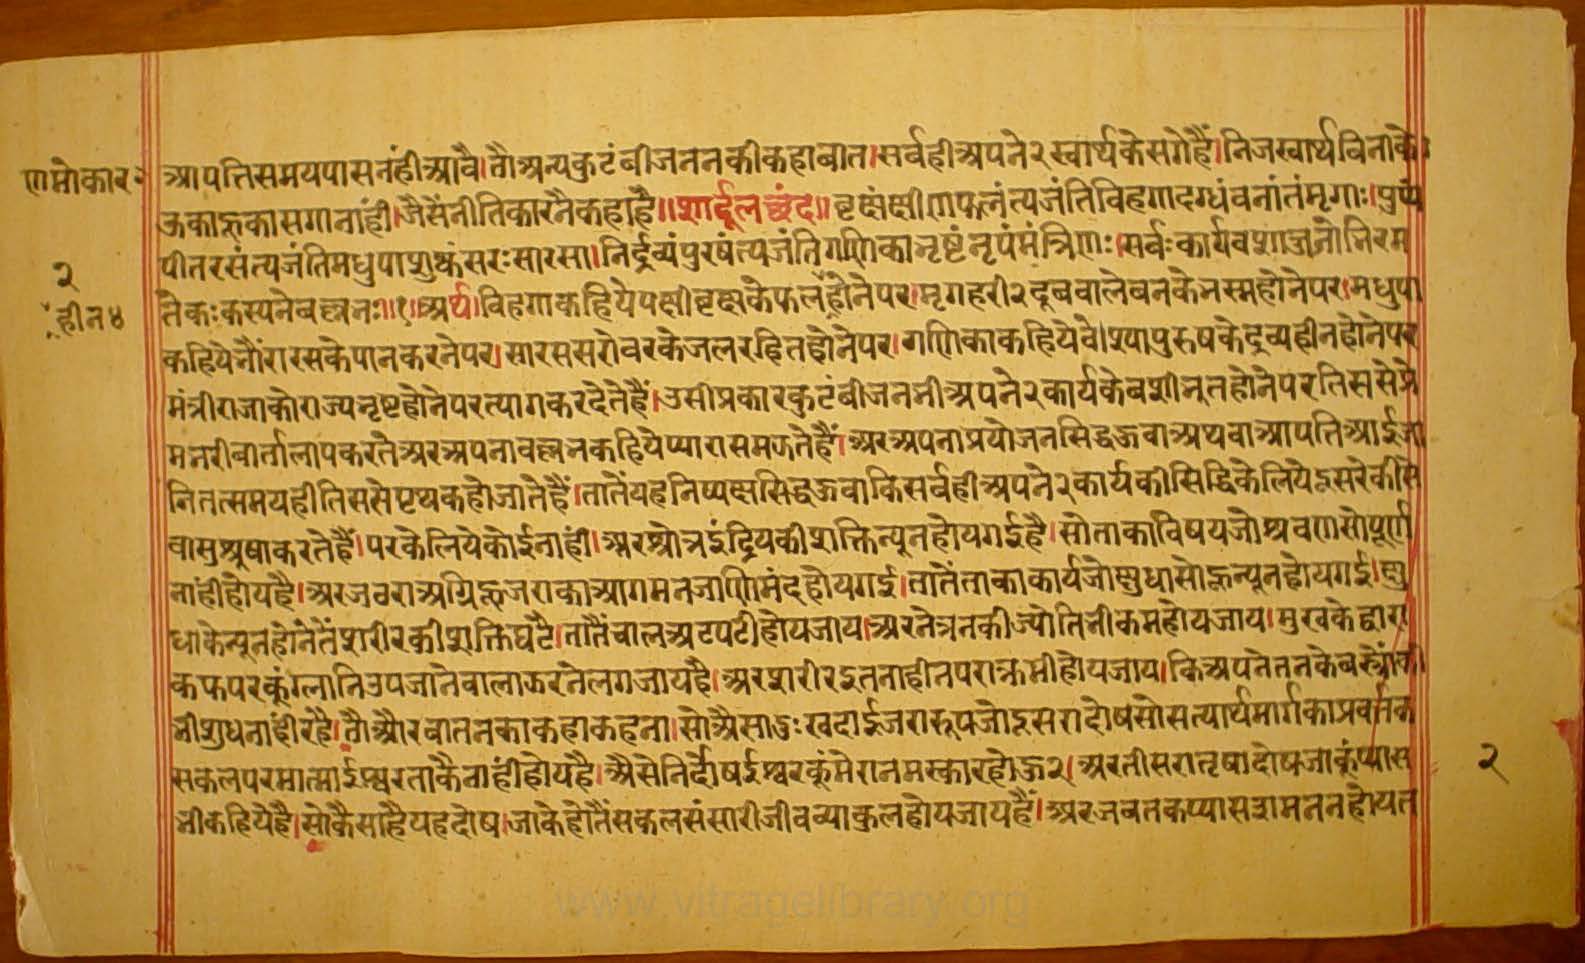 णमोकार
२
हीन ४
आपतिसमयपासनंहीआवै।तौअन्यकुटंबीजननकीकहाबात।सर्वहीअपने२स्वार्थकेसगेहैं।निजस्वार्थविनाको
ऊकाहूकासगानांही।जैसैंनीतिकारनैकहाहै॥शार्दूलछंद॥वृक्षंक्षीणफलंत्यजंतिविहगादग्धंवनांतंमृगाः।पुष्पं
पीतरसंत्यजंतिमधुपाशुष्कंसरःसारसा।निर्द्रव्यंपुरषंत्यजंतिगणिकाभृष्टंनृपंमंत्रिणः।सर्वःकार्यवशाज्जनोभिरम
तेकःकस्यनेबल्लभः॥१॥अर्थ।विहगाकहियेपक्षीवृक्षकेफलहोनेपर।मृगहरी२दूबवालेवनकेभस्महोनेपर।मधुपा
कहियेभौंरारसकेपानकरनेपर।सारससरोवरकेजलरहितहोनेपर।गणिकाकहियेवेश्यापुरुषकेद्रव्यहीनहोनेपर
मंत्रीराजाकोराज्यभृष्टहोनेपरत्यागकरदेतेहैं।उसीप्रकारकुटंबीजनभीअपने२कार्यकेबशीभुतहोनेपरतिससेप्रे
मभरीवार्तालापकरतेअरअपनावल्लभकहियेप्यारासमझतेहैं।अरअपनाप्रयोजनसिद्धहुवाअथवाआपतिआईजा
नितत्समयहीतिससेपृथकहोजातेहैं।तातेंयहनिष्पक्षसिद्धहुवाकिसर्वहीअपने२कार्यकीसिद्धिकेलियेदूसरेकीसे
वासुश्रुषाकरतेहैं।परकेलियेकोईनाहीं।अरश्रोत्रइंद्रियकीशक्तिन्यूनहोयगईहै।सोताकाविषयजोश्रवणसोपूर्ण
नांहीहोयहै।अरजठराअग्निहूजराकाआगमनजाणिमंदहोयगई।तातेंताकाकार्यजोक्षुधासोहून्यूनहोयगई।क्षु
धाकेन्यूनहोनेतेंशरीरकीशक्तिघटै।तातैंचालअटपटीहोयजाय।अरनेत्रनकीज्योतिभीकमहोयजाय।मुखकेद्वारा
कफपरकूंग्लानिउपजानेवालाझरनेलगजायहै।अरशरीरइतनाहीनपराक्रमीहोयजाय।किअपनेतनकेबस्त्रोंकी
भीशुधनाहींरहै।तौऔरबातनकाकहाकहना।सोअैसादुःखदाईजरारूपजोदूसरादोषसोसत्यार्थमार्गकाप्रवर्तक
सकलपरमात्माईश्वरताकैनाहीहोयहै।अैसेनिर्दोषईश्वरकूंमेरानमस्कारहोऊ२।अरतीसरातृषादोषजाकूंप्यास
भीकहियेहै।सोकैसाहैयहदोष।जाकेहोतैंसकलसंसारीजीवव्याकुलहोयजायहैं।अरजबतकप्यासशमननहोयत
२
www.vitragelibrary.org